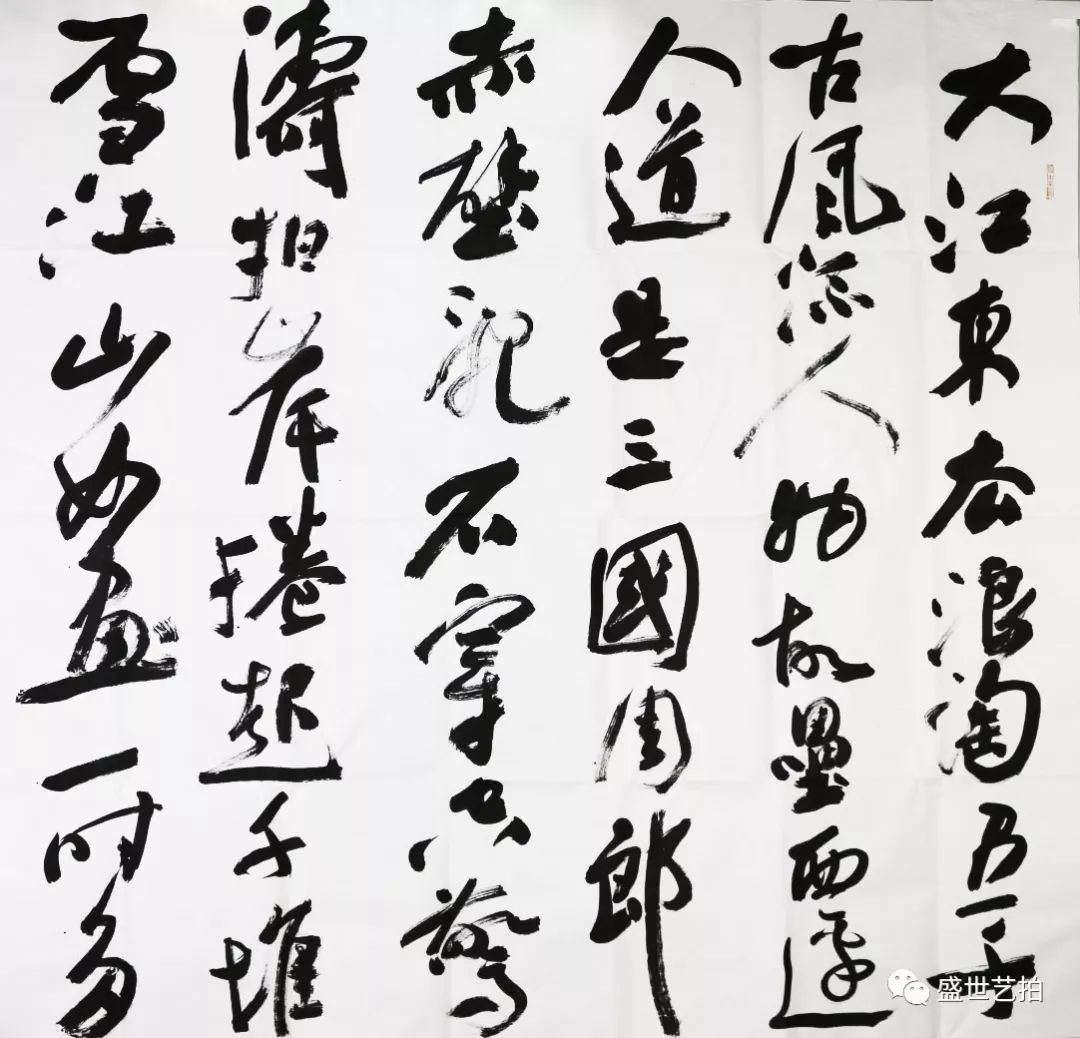 大江東去浪淘盡千
古風流人物故壘西邊
人道是三國周郎
赤壁亂石穿空驚
濤拍岸捲起千堆
雪江山如畫一時多
盛世艺拍